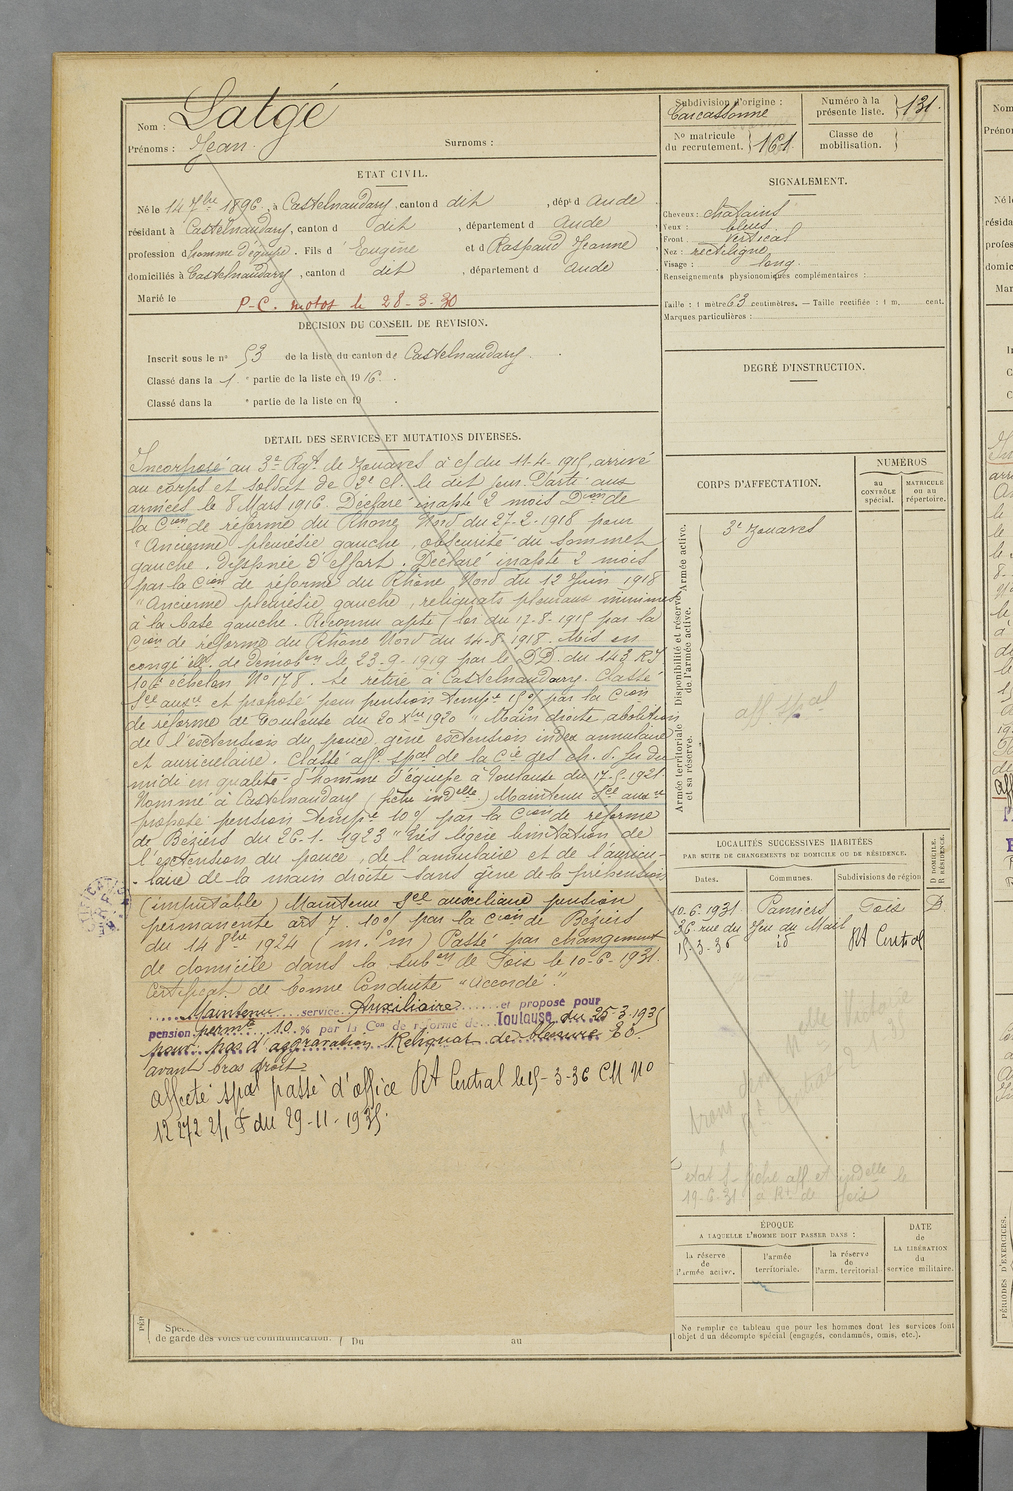 Nom : Latgé
Prénoms : Jean. Surnoms :
Subdivision d'origine :
Carcassonne
Numéro à la présente liste. 131.
Nº matricule du recrutement. 161
Classe de mobilisation.
ETAT CIVIL.
Né le 14 7bre 1896, à Castelnaudary, canton d dit, dépt d Aude
résidant à Castelnaudary, canton d dit, département d Aude
profession d'homme d'équipe. Fils d' Eugène et d Raspaud Jeanne
domiciliés à Castelnaudary, canton d dit, département d Aude
Marié le
P-C. motos le 28-3-30
SIGNALEMENT.
Cheveux : chatains
Yeux : bleus
Front : vertical
Nez : rectiligne
Visage : long
Renseignements physionomiques complémentaires :
Taille : 1 mètre 63 centimètres. — Taille rectifiée : 1 m. cent.
Marques particulières :
DÉCISION DU CONSEIL DE RÉVISION.
Inscrit sous le nº 53 de la liste du canton de Castelnaudary.
Classé dans la 1 e partie de la liste en 1916.
Classé dans la e partie de la liste en 19 .
DEGRÉ D'INSTRUCTION.
DÉTAIL DES SERVICES ET MUTATIONS DIVERSES.
Incorporé au 3e Rgt de Zouaves à c/ du 11-4-1915, arrivé
au corps et soldat de 2e cl. le dit jour. Parti aux
armées le 8 Mars 1916. Déclaré inapte 2 mois Don de
la Con de réforme du Rhône Nord du 27-2-1918 pour
"Ancienne pleurésie gauche, obscurité du sommet
gauche. Dyspnée d'effort. Déclaré inapte 2 mois
par la Con de réforme du Rhône Nord du 12 Juin 1918
"Ancienne pleurésie gauche, reliquats pleuraux minimes
à la base gauche. Reconnu apte (loi du 17-8-1915 par la
Con de réforme du Rhône Nord du 14-8-1918. Mis en
congé ill. de démobon le 23-9-1919 par le DD. du 143 RI
10e échelon Nº 178. Se retire à Castelnaudary. Classé
Sce auxre et proposé pour pension tempre 15% par la Con
de réforme de Toulouse du 20 Xbre 1920 "Main droite, abolition
de l'extension du pouce, gêne extension index annulaire
et auriculaire. Classé aff. spal de la Cie des ch. d. fer du
midi en qualité d'homme d'équipe à Toulouse du 17-5-1921.
Nommé à Castelnaudary (fiche indelle) Maintenu Sce auxre
proposé pension tempre 10% par la Con de réforme
de Béziers du 26-1-1923 "très légère limitation de
l'extension du pouce, de l'annulaire et de l'auricu-
-laire de la main droite sans gêne de la préhension
(imputable) Maintenu Sce auxiliaire pension
permanente art 7. 10% par la Con de Béziers
du 14 8bre 1924 (m. Im) Passé par changement
de domicile dans la subon de Foix le 10-6-1931.
Certificat de bonne Conduite "Accordé".
Maintenu service Auxiliaire et proposé pour
pension permte 10 % par la Con de réforme de Toulouse du 25-3-1935
pour: pas d'aggravation. Reliquat de blessure
avant bras droit.
affecté spal passé d'office Rt Central le 15-3-36 CM Nº
12 272 2/1 F du 29-11-1935.
CORPS D'AFFECTATION.
NUMÉROS
au CONTRÔLE spécial.
MATRICULE ou au répertoire.
Armée active.
3e Zouaves
Disponibilité et réserve de l'armée active.
Armée territoriale et sa réserve.
aff. spal
LOCALITÉS SUCCESSIVES HABITÉES
PAR SUITE DE CHANGEMENTS DE DOMICILE OU DE RÉSIDENCE.
D DOMICILE. R RÉSIDENCE.
Dates. Communes. Subdivisions de région
10.6.1931 Pamiers Foix D.
36 rue du Jeu du Mail
15-3-36 id Rt Central
etat f fiche aff et indelle le
19-6-31 a Rt de Foix
ÉPOQUE
A LAQUELLE L'HOMME DOIT PASSER DANS :
la réserve de l'armée active.
l'armée territoriale.
la réserve de l'arm. territoriale
DATE de LA LIBÉRATION du service militaire.
Ne remplir ce tableau que pour les hommes dont les services font
l'objet d'un décompte spécial (engagés, condamnés, omis, etc.).
de garde des voies de communication. Du au
PÉRIODES D'EXERCICES.